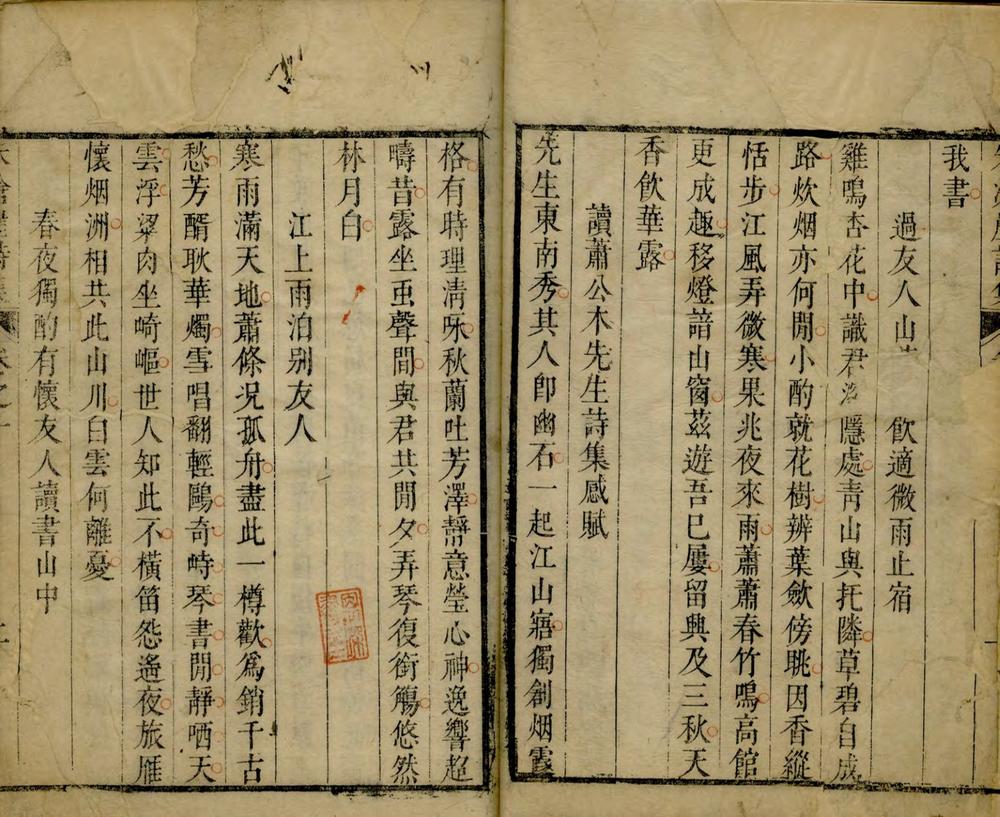 我書
過友人山 飲適微雨止宿
雞鳴杏花中識君 隱處青山與托隣草碧自成
路炊烟亦何閒小酌就花樹辨葉斂傍眺因香縱
恬步江風弄微寒果兆夜來雨蕭蕭春竹鳴高館
更成趣移燈諳山窗茲遊吾已屢留興及三秋天
香飲華露
讀蕭公木先生詩集感賦
先生東南秀其人卽幽石一起江山寤獨創烟霞
格有時理清咏秋蘭吐芳澤靜意瑩心神逸響超
疇昔露坐虫聲間與君共閒夕弄琴復銜觴悠然
林月白
江上雨泊別友人
寒雨滿天地蕭條况孤舟盡此一樽歡爲銷千古
愁芳醑耿華燭雪唱翻輕鷗奇峙琴書閒靜哂天
雲浮粱肉坐崎嶇世人知此不橫笛怨遙夜旅雁
懷烟洲相共此山川白雲何離憂
春夜獨酌有懷友人讀書山中